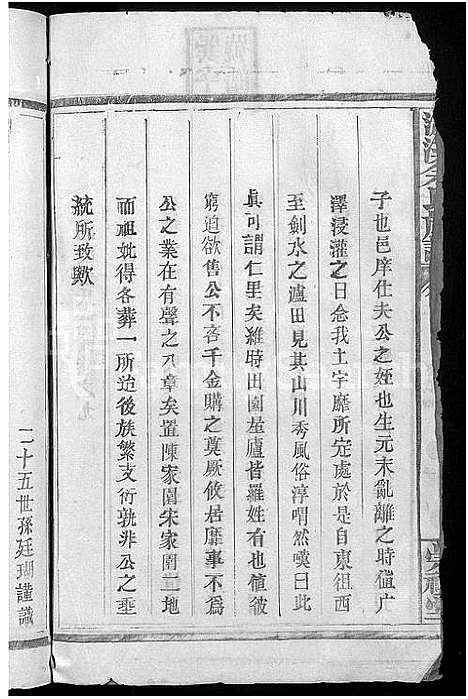 子也邑庠仕夫公之姪也生元末亂離之時值广
澤浸灌之日念我土宇靡所定處於是自東徂西
至劍水之瀘田見其山川秀風俗淳喟然嘆曰此
眞可謂仁里矣維時田園屋廬皆羅姓有也値彼
窮迫欲售公不吝千金購之奠厥攸居靡事不爲
公之業在有聲之八章矣置陳家園宋家園二地
而祖妣得各葬一所迨後族繁支衍孰非公之垂
統所致歟
二十五世孫廷瑚謹識